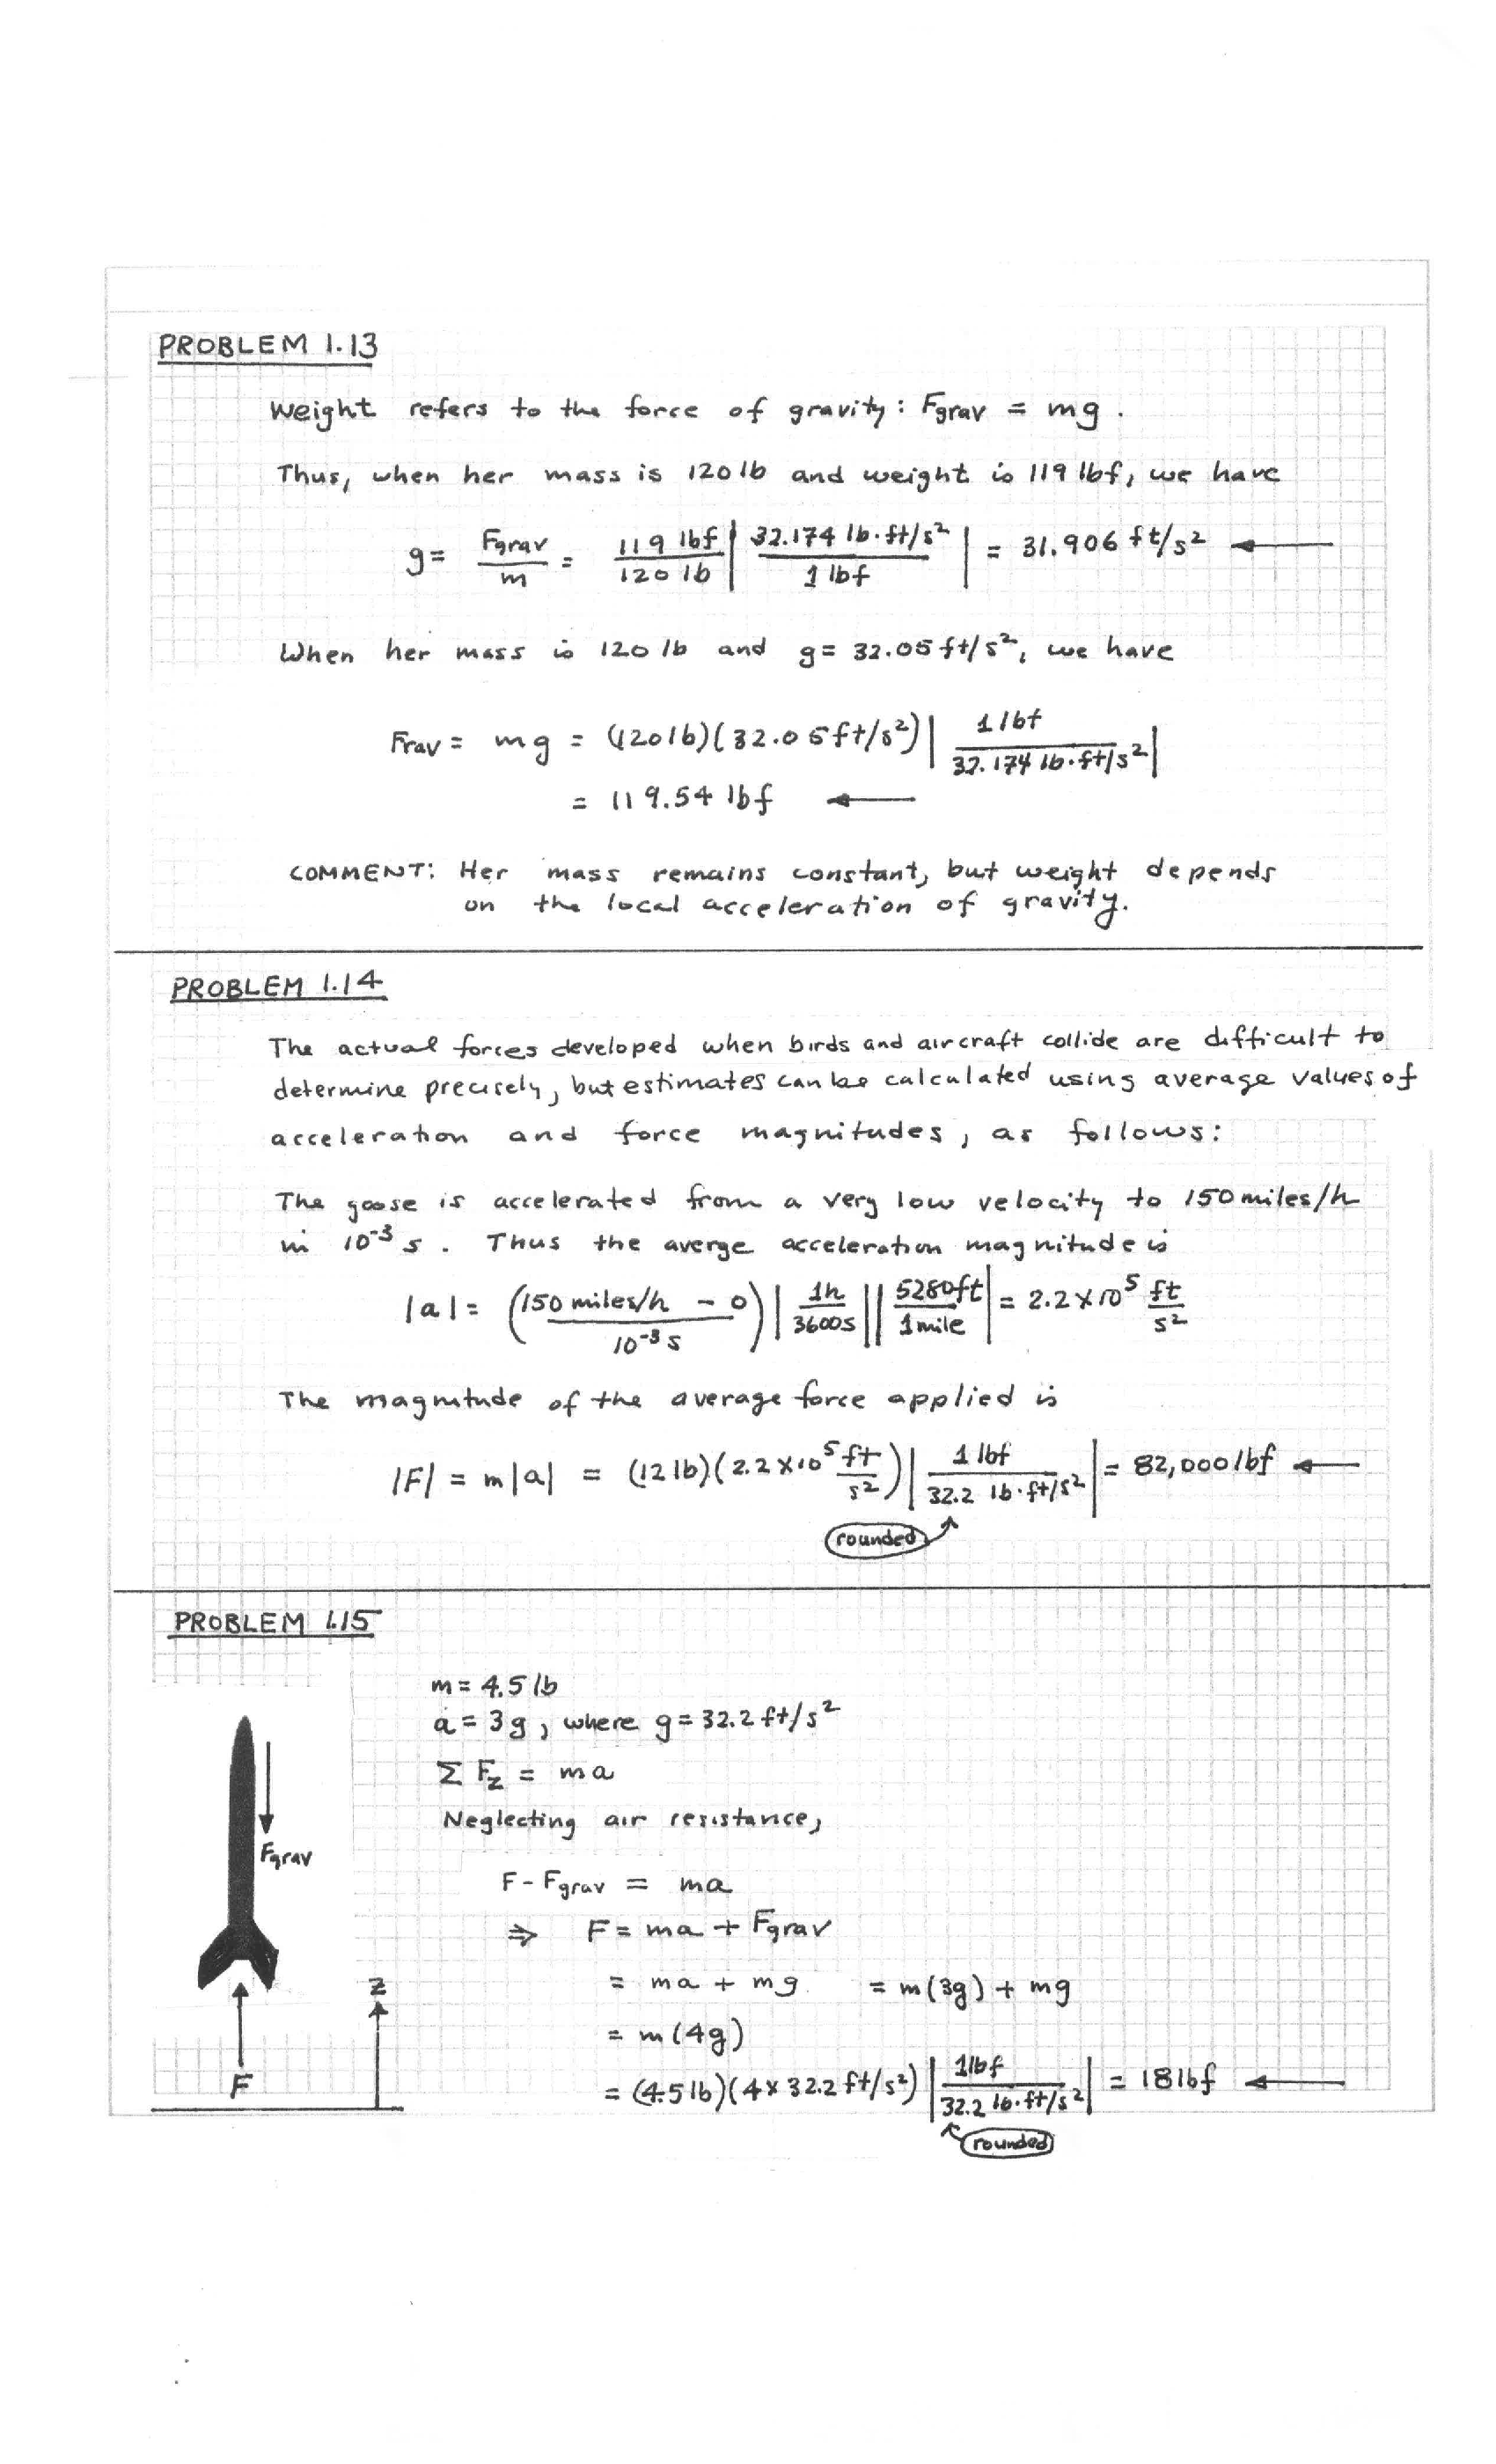 PROBLEM 1.13
Weight refers to the force of gravity: Fgrav = mg.
Thus, when her mass is 120 lb and weight is 119 lbf, we have
g = Fgrav/m = 119 lbf/120 lb | 32.174 lb·ft/s²/1 lbf | = 31.906 ft/s² ←
When her mass is 120 lb and g = 32.05 ft/s², we have
Frav = mg = (120 lb)(32.05 ft/s²) | 1 lbf/32.174 lb·ft/s² |
= 119.54 lbf ←
COMMENT: Her mass remains constant, but weight depends
on the local acceleration of gravity.
PROBLEM 1.14
The actual forces developed when birds and aircraft collide are difficult to
determine precisely, but estimates can be calculated using average values of
acceleration and force magnitudes, as follows:
The goose is accelerated from a very low velocity to 150 miles/h
in 10⁻³ s. Thus the averge acceleration magnitude is
|a| = (150 miles/h - 0/10⁻³ s) | 1h/3600s | | 5280ft/1mile | = 2.2 × 10⁵ ft/s²
The magnitude of the average force applied is
|F| = m|a| = (12 lb)(2.2 × 10⁵ ft/s²) | 1 lbf/32.2 lb·ft/s² | = 82,000 lbf ←
rounded
PROBLEM 1.15
m = 4.5 lb
a = 3g, where g = 32.2 ft/s²
Σ Fz = ma
Neglecting air resistance,
Fgrav
F - Fgrav = ma
⇒ F = ma + Fgrav
z
= ma + mg = m(3g) + mg
= m(4g)
F
= (4.5 lb)(4 × 32.2 ft/s²) | 1 lbf/32.2 lb·ft/s² | = 18 lbf ←
rounded